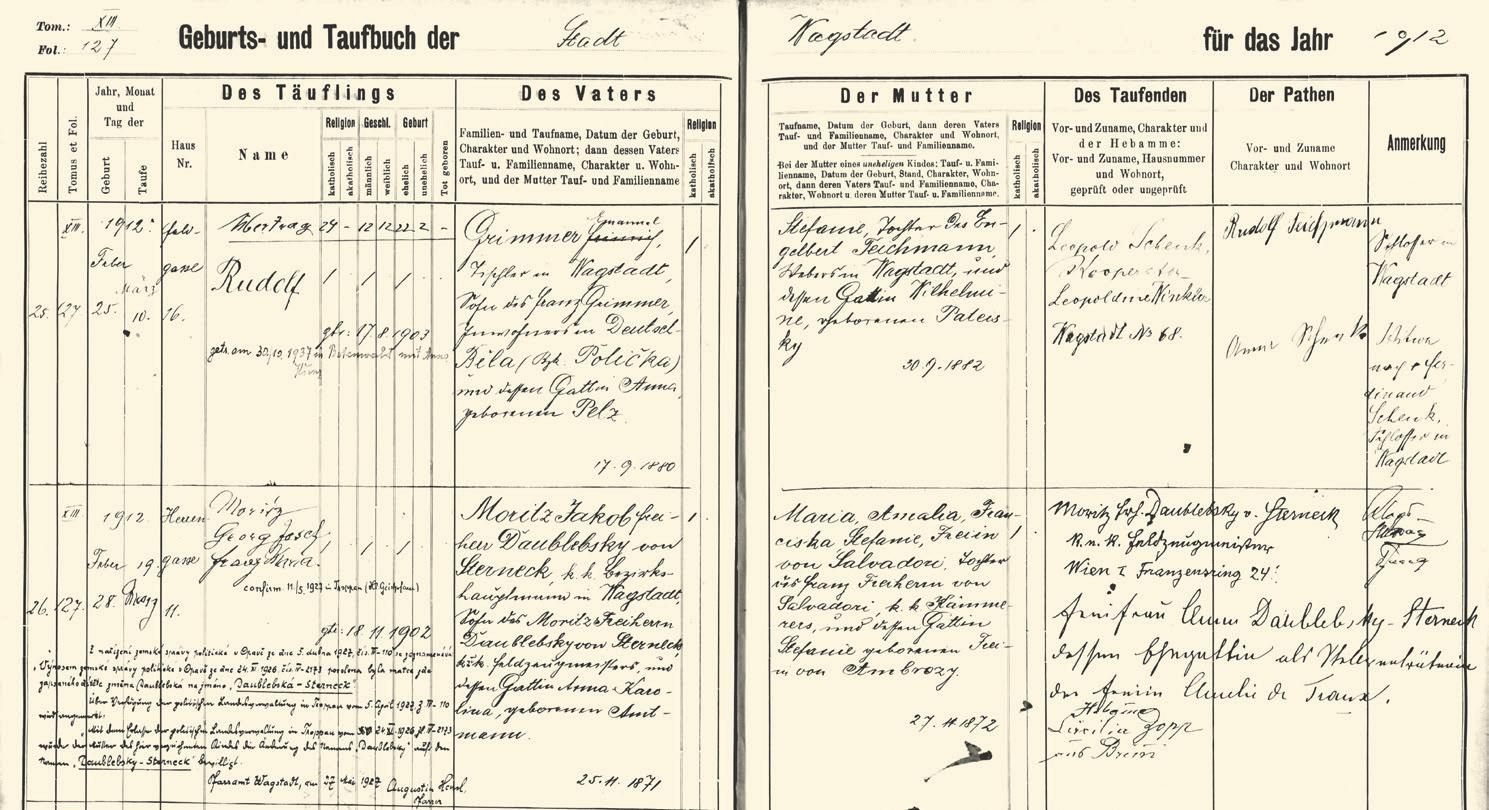 Tom.: XIII.
Fol.: 127
Geburts- und Taufbuch der Stadt Wagstadt. für das Jahr 1912
Reihezahl
Tomus et Fol.
Jahr, Monat
und
Tag der
Geburt
Taufe
Des Täuflings
Haus
Nr.
Name
Religion
katholisch
akatholisch
Geschl.
männlich
weiblich
Geburt
ehelich
unehelich
Tot geboren
Des Vaters
Familien- und Taufname, Datum der Geburt,
Charakter und Wohnort; dann dessen Vaters
Tauf- u. Familienname, Charakter u. Wohn-
ort, und der Mutter Tauf- und Familienname
Religion
katholisch
akatholisch
Der Mutter
Taufname, Datum der Geburt, dann deren Vaters
Tauf- und Familienname, Charakter und Wohnort,
und der Mutter Tauf- und Familienname.
Bei der Mutter eines unehelichen Kindes: Tauf- u. Fami-
lienname, Datum der Geburt, Stand, Charakter, Wohn-
ort, dann deren Vaters Tauf- und Familienname, Cha-
rakter, Wohnort u. deren Mutter Tauf- u. Familienname.
Religion
katholisch
akatholisch
Des Taufenden
Vor- und Zuname, Charakter und
der Hebamme:
Vor- und Zuname, Hausnummer
und Wohnort,
geprüft oder ungeprüft
Der Pathen
Vor- und Zuname
Charakter und Wohnort
Anmerkung
25.
XIII.
127
1912.
Feber
25.
März
10.
Feld-
gasse
16.
Uebertrag 24 - 12 12 22 2 -
Rudolf 1 1 1
gtr: 17.8.1903
Grimmer Emanuel
Heinrich,
Tischler in Wagstadt,
Sohn des Franz Grimmer,
Inwohners in Deutsch-
Bĕla (Bzk. Polička)
und dessen Gattin Anna,
geborenen Pelz.
17.9.1880
1
Stefanie, Tochter des En-
gelbert Teichmann,
Webers in Wagstadt, und
dessen Gattin Wilhelmi-
ne, geborenen Paters-
ky
30.9.1882
1
Leopold Schenk,
Kooperator
Leopoldine
Wagstadt No 68.
Rudolf Teichmann
Schlosser in
Wagstadt
Anna Schenk
nach Fer-
dinand
Schenk,
Schlosser in
Wagstadt
26.
XIII
127.
1912
Feber
28.
19.
März
Herren-
gasse
11.
Moriz
Georg Josef
Franz Maria.
1 1 1
confirm 11/5. 1927 in Troppau
gtr: 18 11 1902
Moritz Jakob Frei-
herr Daublebsky von
Sterneck, k.k. Bezirks-
hauptmann in Wagstadt,
Sohn des Moritz Freiherrn
Daublebsky von Sterneck,
k.u.k. Feldzeugmeisters, und
dessen Gattin Anna Karo-
lina, geborenen Amt-
mann.
25.11.1871
1
Maria, Amalia, Fran-
ciska Stefanie, Freiin
von Salvadori, Tochter
des Franz Freiherrn von
Salvadori, k.k. Kämme-
rers, und dessen Gattin
Stefanie geborenen Frei-
in von Ambrozy.
27.11.1872
1
Moritz Frh. Daublebsky v. Sterneck
k.u.k. Feldzeugmeister
Wien I Franzensring 24.
Freifrau Anna Daublebsky-Sterneck
dessen Ehegattin als Stellvertreterin
der Freiin Amelie de Traux.
Hebamme
Cäcilia Zopp
aus Brünn
Z nařízení zemské správy politické v Opavě ze dne 5. dubna 1927, čís. IV-110 se poznamenává
Výnosem zemské správy politické v Opavě ze dne 24. VI. 1926, čís. IV-2173 povolena byla matce
jména Daublebská na jméno "Daublebská-Sterneck"
Über Verfügung der politischen Landesverwaltung in Troppau vom 5. April 1927 Z. IV-110
wird angemerkt:
Mit dem Erlasse der politischen Landesverwaltung in Troppau vom 24. VI. 1926 Z. IV-2173
wurde der Mutter des hier verzeichneten Kindes die Änderung des Namens "Daublebsky" auf den
Namen "Daublebsky-Sterneck" bewilligt.
Pfarramt Wagstadt, am 27. Mai 1927 Augustin Henzl,
Pfarrer